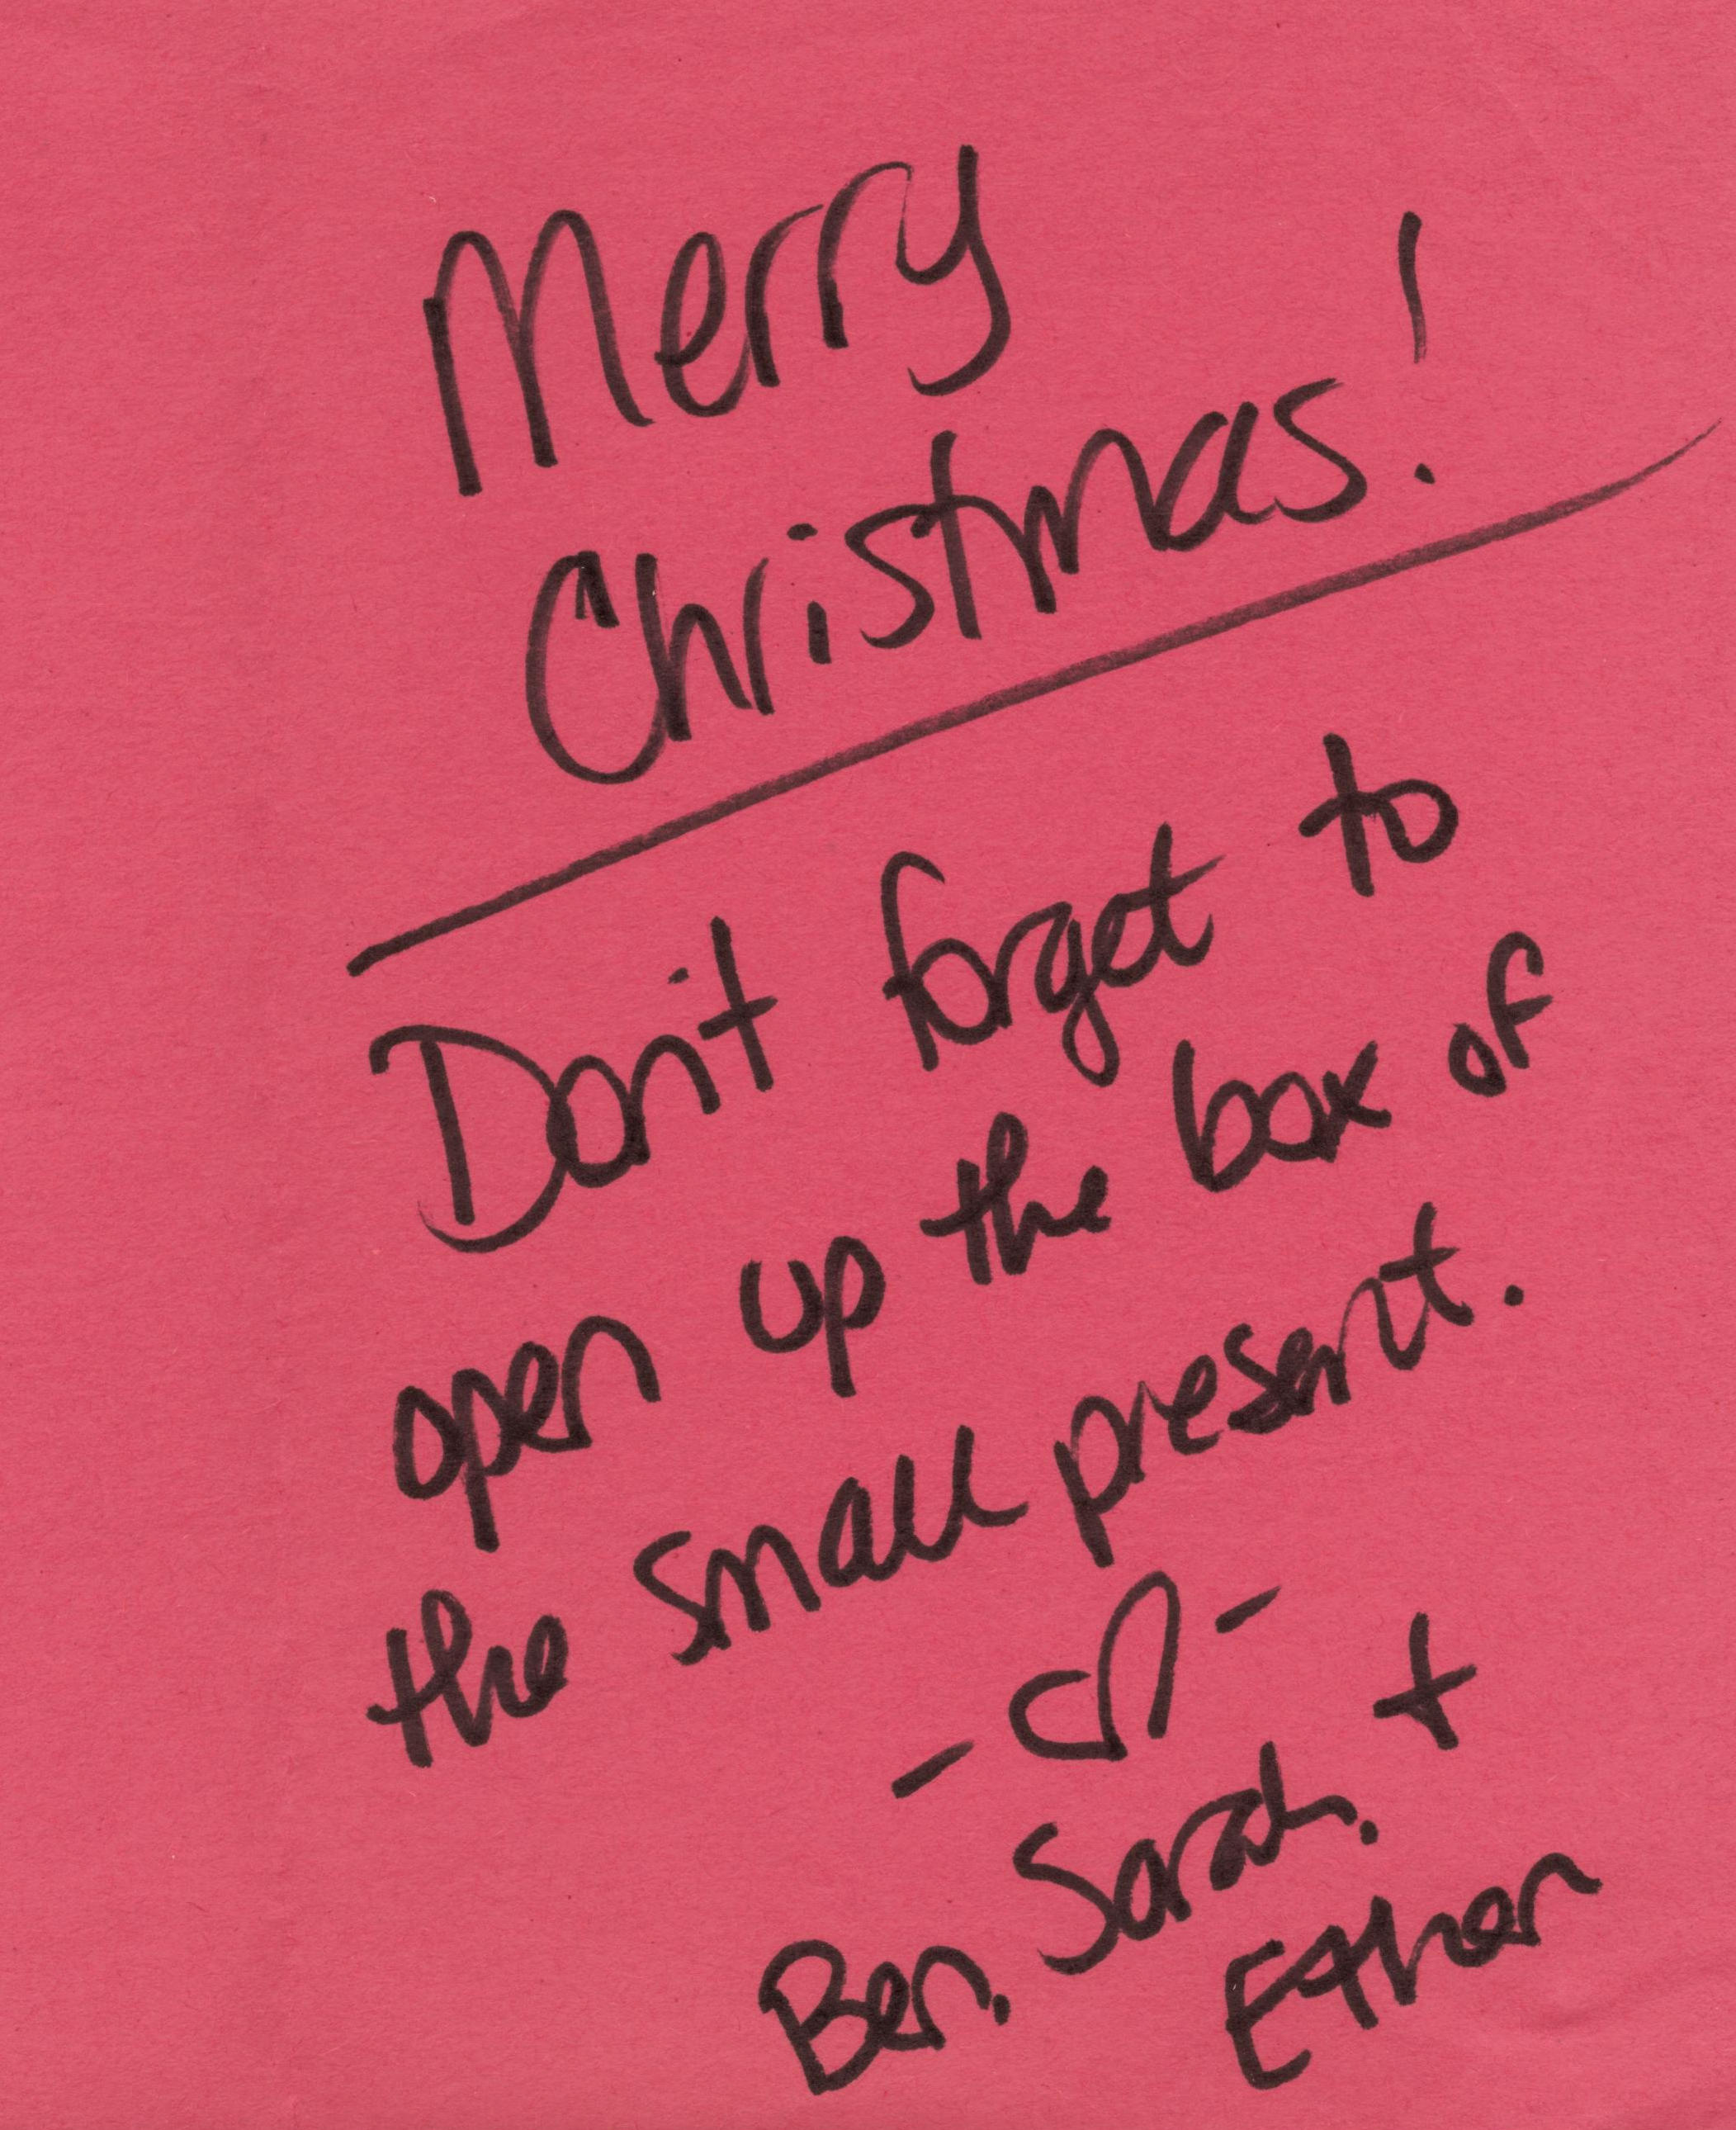 Merry
Christmas!
Don't forget to
open up the box of
the small present.
- ♡ -
Ben, Sarah, +
Ethan